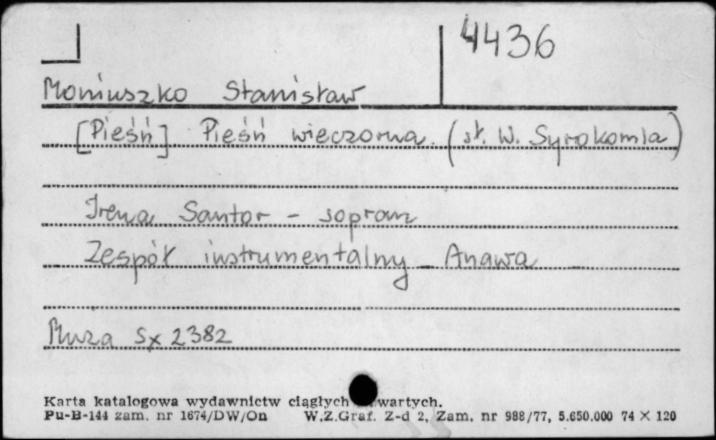 4436
Moniuszko Stanisław
[Pieśń] Pieśń wieczorna. (sł. W. Syrokomla)
Irena Santor - sopran
Zespół instrumentalny - Anawa
Muza Sx 2382
Karta katalogowa wydawnictw ciągłych wartych.
Pu-B-144 zam. nr 1674/DW/On W.Z.Graf. Z-d 2, Zam. nr 988/77, 5.650.000 74 × 120